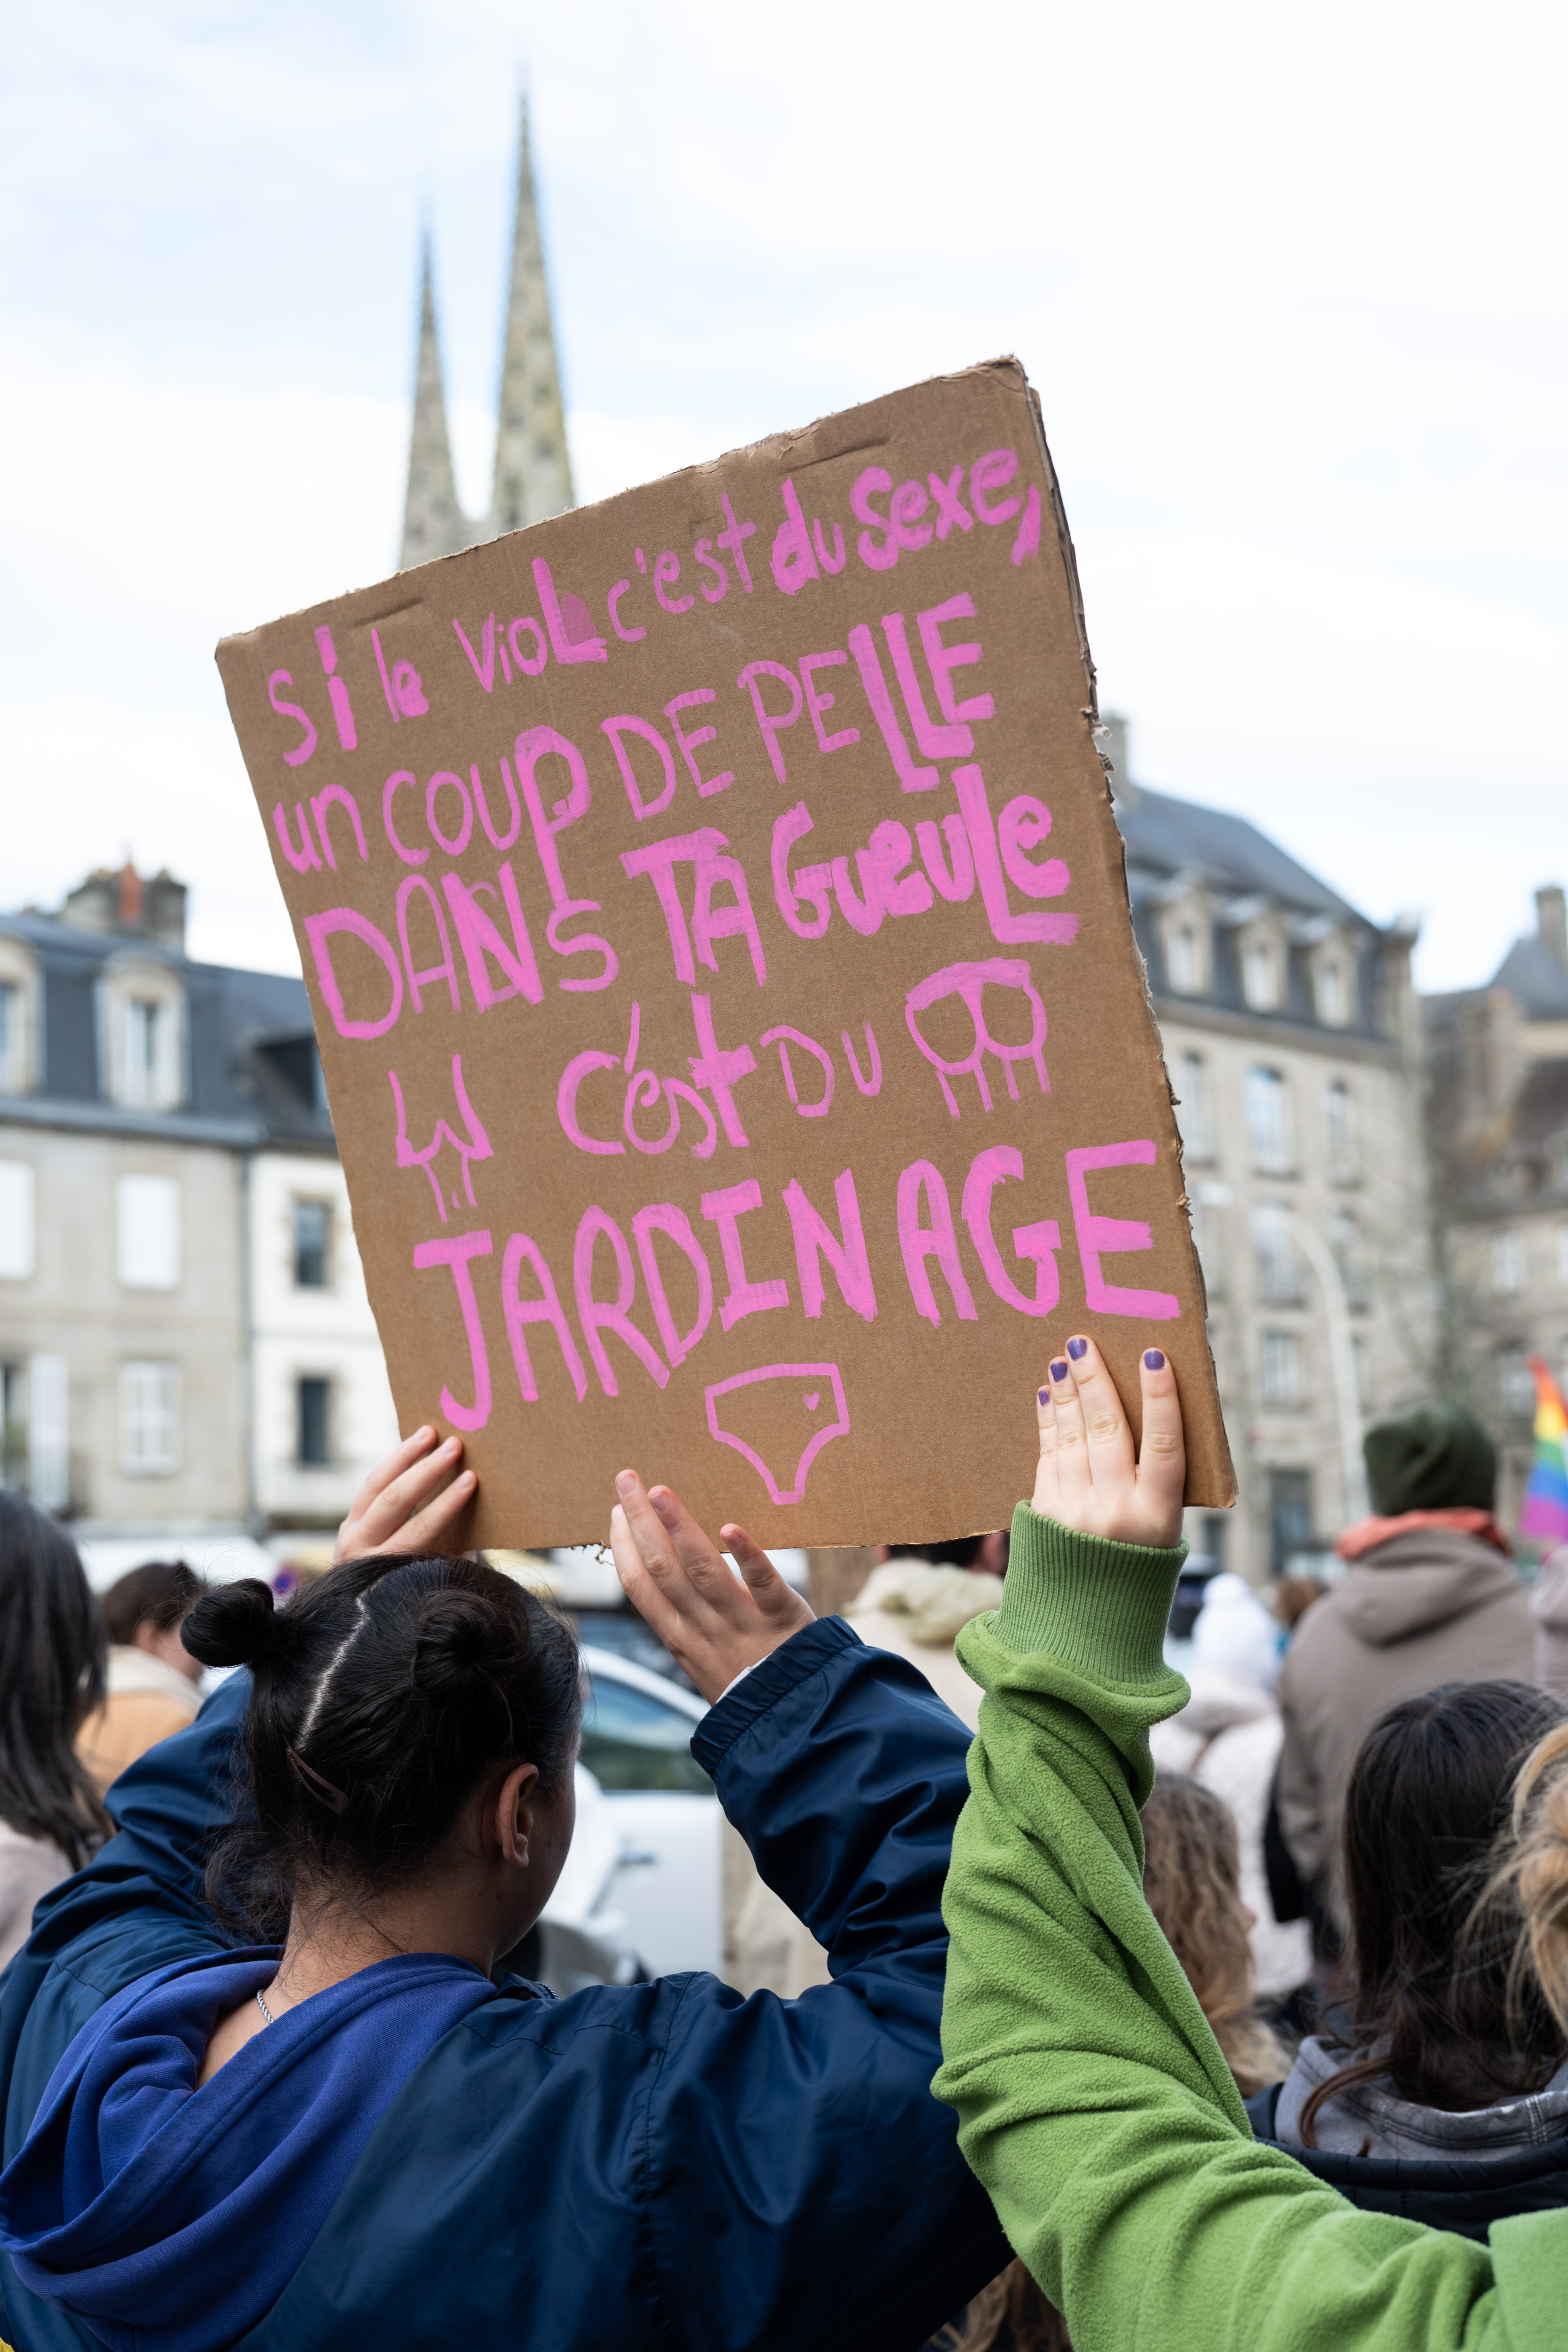 si le vioL c'est du sexe,
un coup DE PELLE
DANS TA GueuLe
c'est DU
JARDINAGE